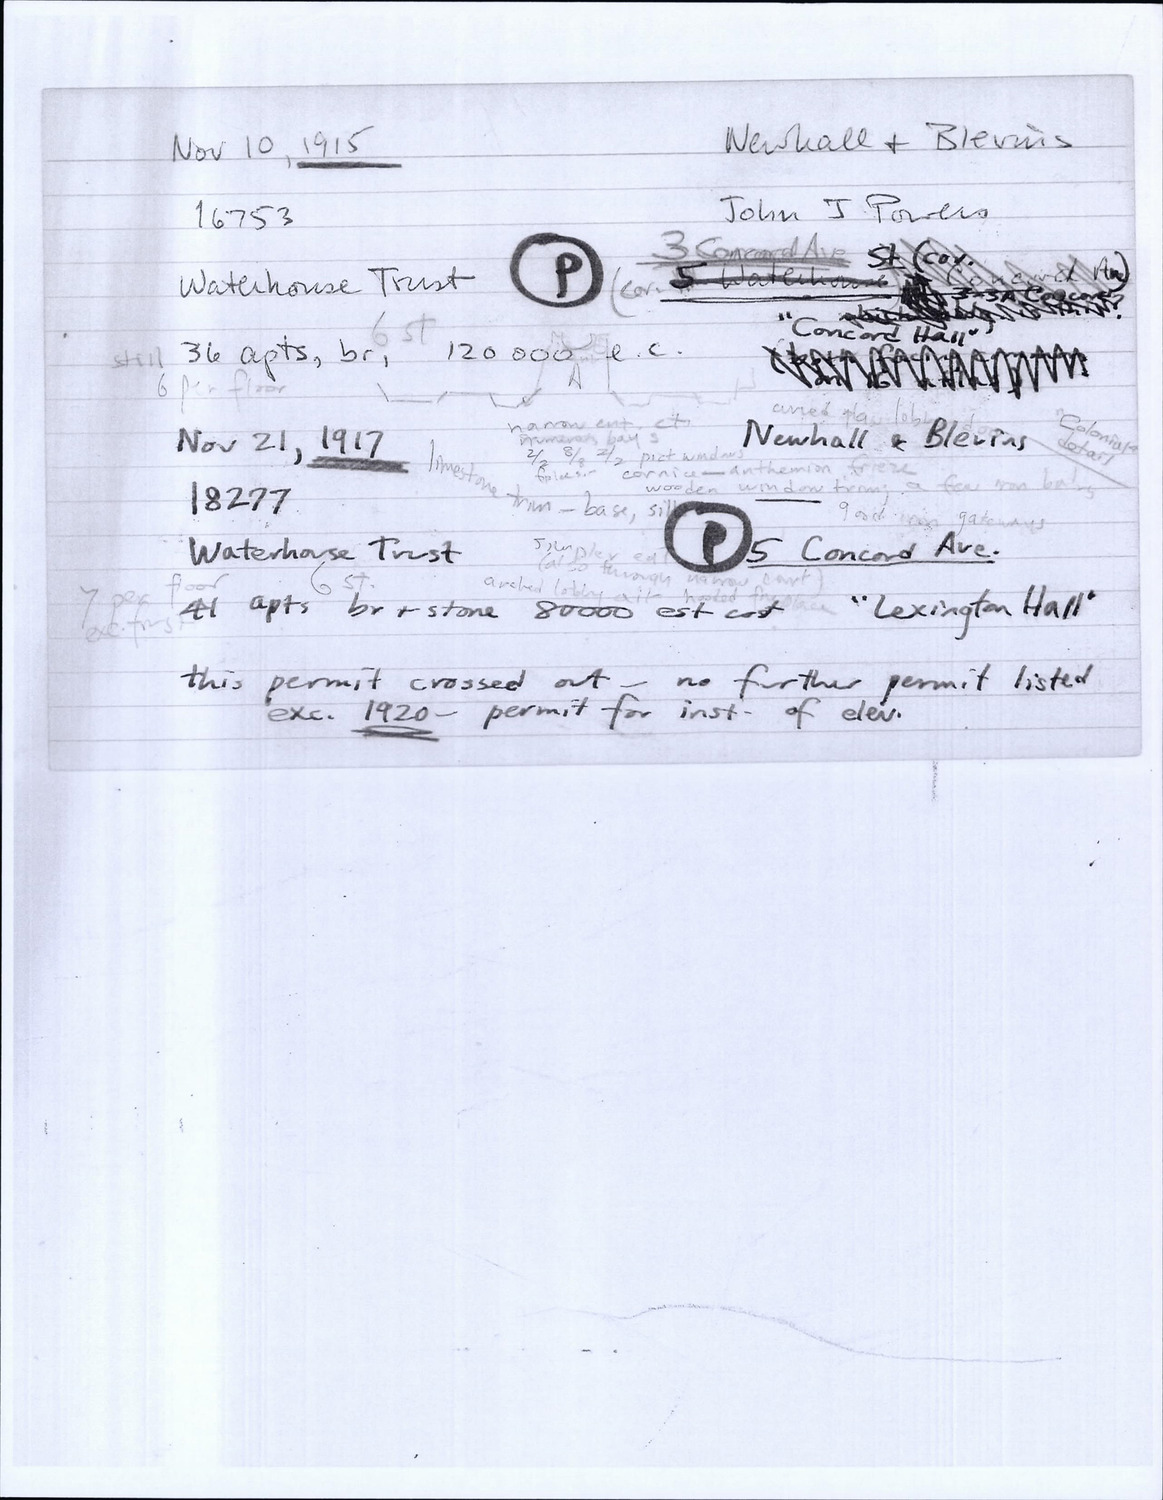 Nov 10, 1915 Newhall + Blevins
16753 John J Powers
3 Concord Ave
Waterhouse Trust P (cor. 5 Waterhouse St (cor. Concord Ave)
3-5A Concord?
"Concord Hall"
6 st
still 36 apts, br, 120 000 e.c.
6 per floor
narrow ent. ct
numerous bays
2/2 8/8 2/2 pict windows
Nov 21, 1917 Newhall & Blevins
"Colonial"
cornice - anthemion frieze
wooden window trim; a few iron balcs
limestone trim - base, sills
18277
good iron gateways
Waterhouse Trust P 5 Concord Ave.
simpler ent
(also through narrow court)
arched lobby with hooded fireplace
7 per floor
exc. first
6 st.
41 apts br + stone 80000 est cost "Lexington Hall"
this permit crossed out - no further permit listed
exc. 1920 - permit for inst. of elev.